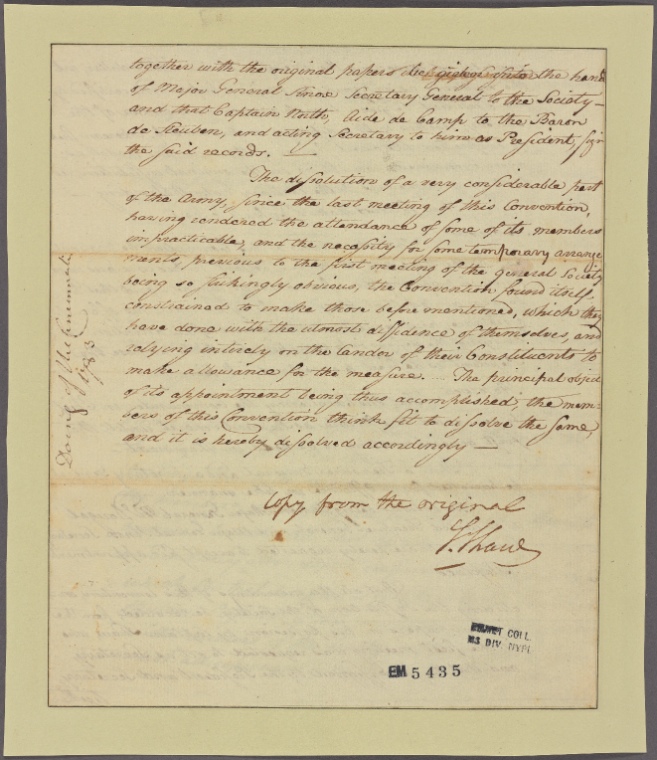 together with the original papers be given into the hands
of Major General Knox Secretary General to the Society —
and that Captain North, Aide de Camp to the Baron
de Steuben, and acting Secretary to him as President, sign
the said records. —
The dissolution of a very considerable part
of the Army, since the last meeting of this Convention,
having rendered the attendance of some of its members
impracticable, and the necessity for some temporary arrange
ments previous to the first meeting of the general Society
being so strikingly obvious, the Convention found itself
constrained to make those before mentioned, which they
have done with the utmost diffidence of themselves, and
relying entirely on the Candor of their Constituents to
make allowance for the measure. — The principal object
of its appointment being thus accomplished, the mem-
bers of this Convention think fit to dissolve the same,
and it is hereby dissolved accordingly —
Copy from the original
S. Shaw
of the Cincinnati
1783
COLL.
MS DIV. NYPL
EM 5435